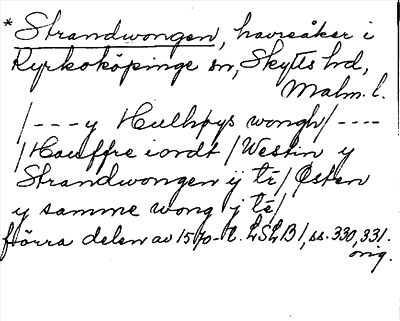 * Strandwongen, havreåker i
Kyrkoköpinge sn, Skytts hd,
Malm. l.
/---y Hulkpys wongh/----
/Hauffre iordt/Westin y
Strandwongen ÿ tÿ/Østen
y samme wong ÿ té/
förra delen av 1570-t. LSLB1, ss. 330, 331.
orig.